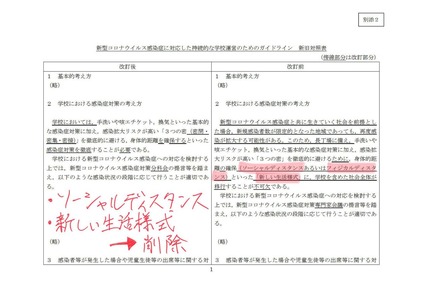 別添2
新型コロナウイルス感染症に対応した持続的な学校運営のためのガイドライン 新旧対照表
（傍線部分は改訂部分）
改訂後
1 基本的考え方
（略）
2 学校における感染症対策の考え方
学校においては、手洗いや咳エチケット、換気といった基本的
な感染症対策に加え、感染拡大リスクが高い「3つの密（密閉・
密集・密接）」を徹底的に避ける、身体的距離を確保するといった
感染症対策を徹底することが必要である。
学校における新型コロナウイルス感染症への対応を検討する
上では、新型コロナウイルス感染症対策分科会の提言等を踏ま
え、以下のような感染状況の段階に応じて行うことが適切であ
る。
・ソーシャルディスタンス
・新しい生活様式
→削除
（略）
3 感染者等が発生した場合や児童生徒等の出席等に関する対
改訂前
1 基本的考え方
（略）
2 学校における感染症対策の考え方
新型コロナウイルス感染症と共に生きていく社会を前提とし
た場合、新規感染者数が限定的となった地域であっても、再度感
染が拡大する可能性がある。このため、長丁場に備え、手洗いや
咳エチケット、換気といった基本的な感染症対策に加え、感染拡
大リスクが高い「3つの密」を徹底的に避けるために、身体的距
離の確保（ソーシャルディスタンスあるいはフィジカルディスタ
ンス）といった「新しい生活様式」に、学校を含めた社会全体が
移行することが不可欠である。
学校における新型コロナウイルス感染症への対応を検討する
上では、新型コロナウイルス感染症対策専門家会議の提言等を踏
まえ、以下のような感染状況の段階に応じて行うことが適切であ
る。
（略）
3 感染者等が発生した場合や児童生徒等の出席等に関する対
1